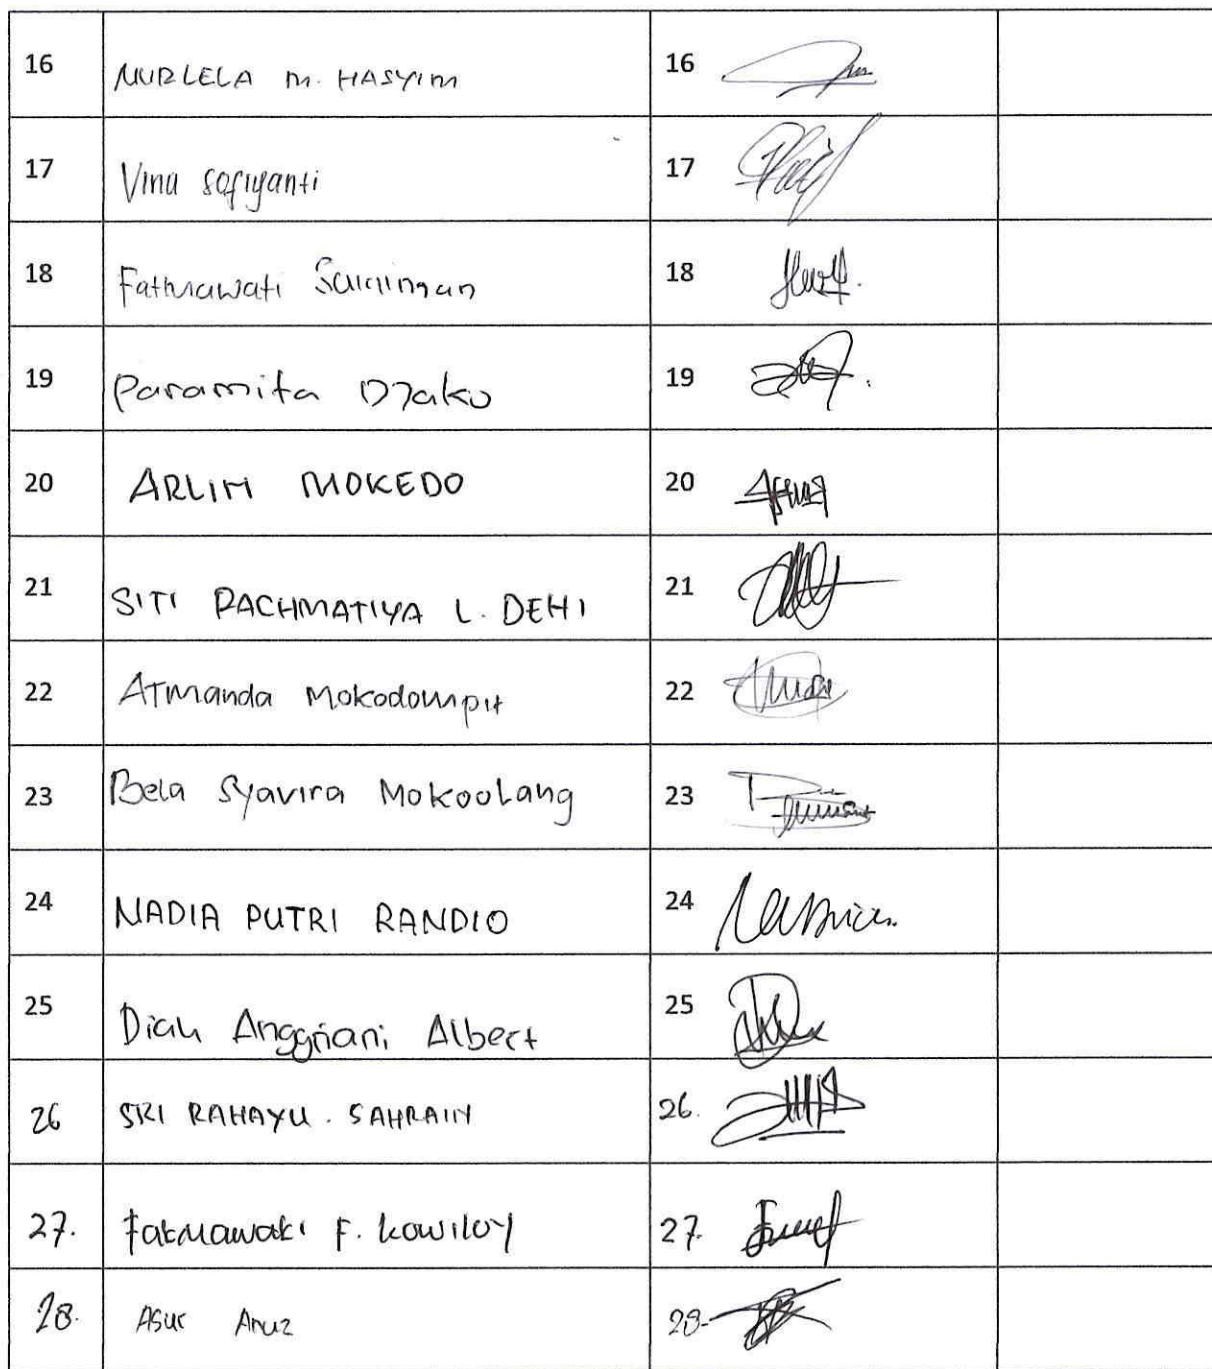 16 NURLELA M. HASYIM 16
17 Vina Sofiyanti 17
18 Fatmawati 18
19 Paramita Djako 19
20 ARLIM MOKEDO 20
21 SITI RACHMATIYA L. DEHI 21
22 Atmanda Mokodompit 22
23 Bela Syavira Mokoolang 23
24 NADIA PUTRI RANDIO 24
25 Diah Anggriani Albert 25
26 SRI RAHAYU . SAHRAIN 26.
27. Fatmawati F. Kowiloy 27.
28. 28.